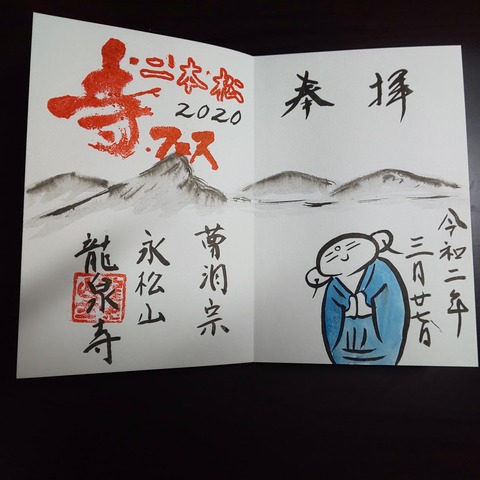 奉拝
令和二年
三月廿七日
二本松
2020
寺・フェス
曹洞宗
永松山
龍泉寺